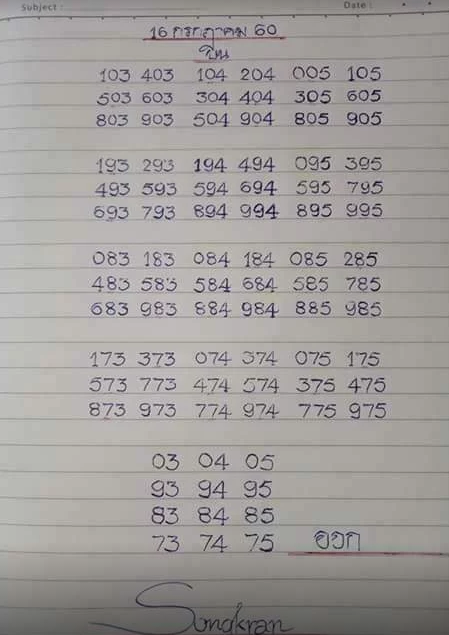 Subject : Date :
16 กรกฎาคม 60
บน
103 403 104 204 005 105
503 603 304 404 305 605
803 903 504 904 805 905
193 293 194 494 095 395
493 593 594 694 595 795
693 793 894 994 895 995
083 183 084 184 085 285
483 583 584 684 585 785
683 983 884 984 885 985
173 373 074 374 075 175
573 773 474 574 375 475
873 973 774 974 775 975
03 04 05
93 94 95
83 84 85
73 74 75 ออก
Songkran